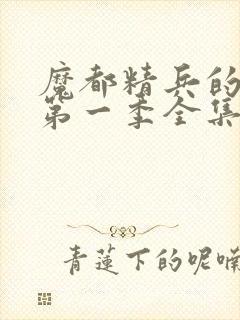 魔都精兵的
第一季全集
青莲下的呢喃